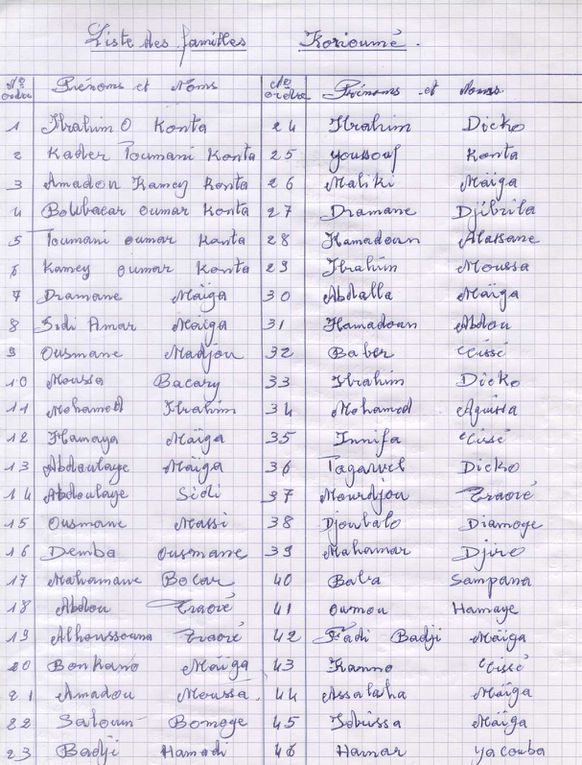 Liste des familles Korioumé.
N° ordre Prénoms et Noms
1 Ibrahim O Konta
2 Kader Toumani Konta
3 Amadou Kamey Konta
4 Boubacar oumar Konta
5 Toumani oumar Konta
6 Kamey oumar Konta
7 Dramane Maïga
8 Sidi Amar Maïga
9 Ousmane Madjou
10 Moussa Bacary
11 Mohamed Ibrahim
12 Hamaya Maïga
13 Abdoulaye Maïga
14 Abdoulaye Sidi
15 Ousmane Massi
16 Demba Ousmane
17 Mahamane Bocar
18 Abdou Traoré
19 Alhoussouna Traoré
20 Bonkano Maïga
21 Amadou Moussa.
22 Satoun Bomoge
23 Badji Hamadi
N° ordre Prénoms et Noms
24 Ibrahim Dicko
25 Youssouf Konta
26 Maliki Maïga
27 Dramane Djibrila
28 Hamadoun Alassane
29 Ibrahim Moussa
30 Abdalla Maïga
31 Hamadoun Abdou
32 Baber Cissé
33 Ibrahim Dicko
34 Mohamed Aguissa
35 Innifa Cissé
36 Dicko
37 Mourdjou Traoré
38 Djoubalo Diamoge
39 Mahamar Djiro
40 Baba Sampana
41 Oumou Hamaye
42 Fadi Badji Maïga
43 Kanno Cissé
44 Assalaha Maïga
45 Maïga
46 Hamar Yacouba